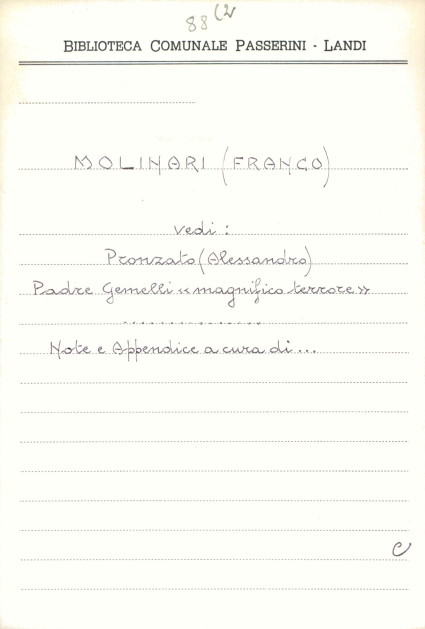 88 (2
BIBLIOTECA COMUNALE PASSERINI - LANDI
MOLINARI (FRANCO)
vedi :
Pronzato (Alessandro)
Padre Gemelli «magnifico terrore»
..............
Note e Appendice a cura di ...
C